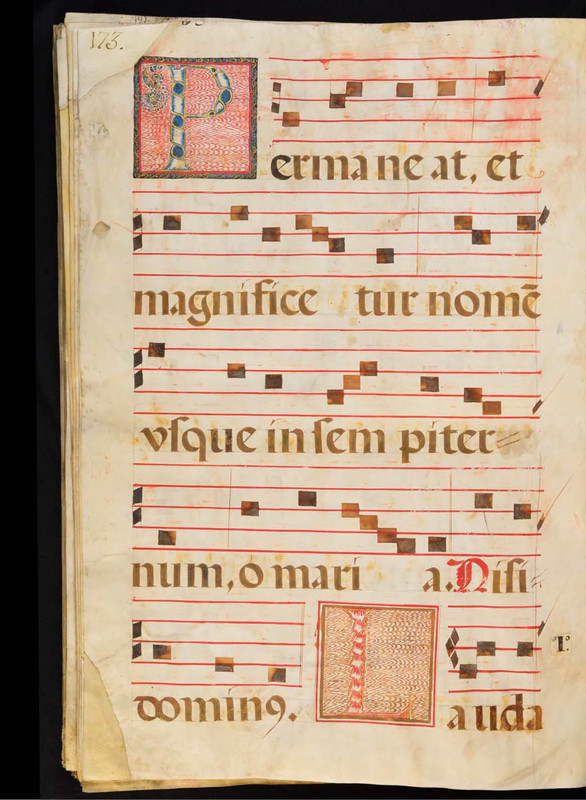 173.
Permaneat, et
magnifice tur nomē
vſque in ſem piter=
num, o mari a. Niſi=
dominꝰ. Lauda
T.º